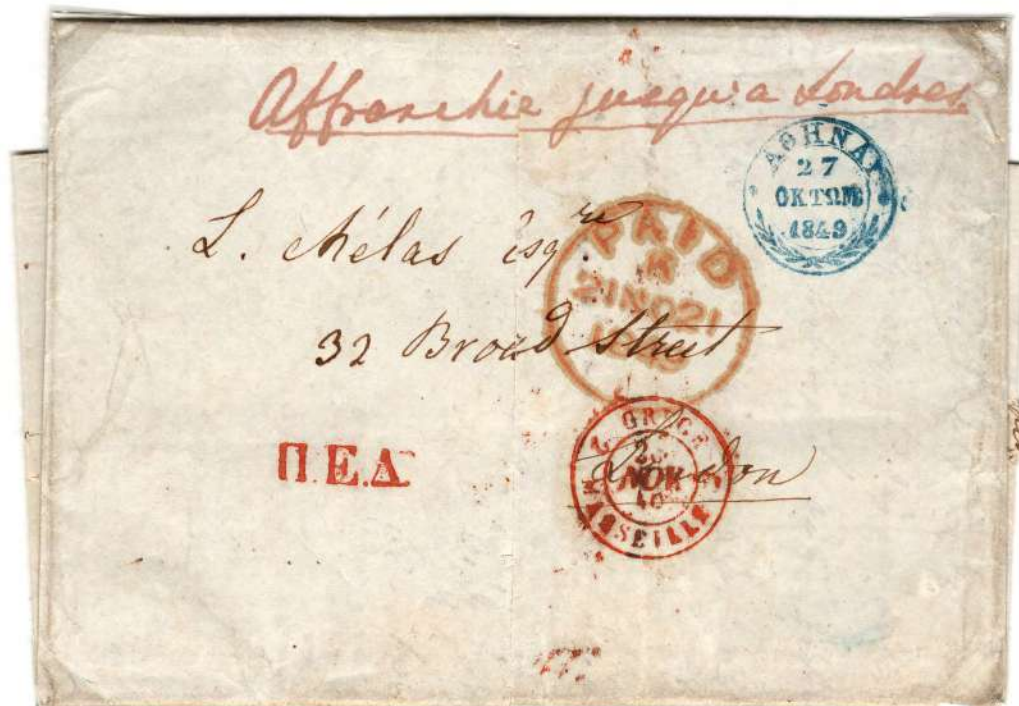 Affranchie jusqu'a Londres.
ΑΘΗΝΑΙ
27
ΟΚΤΩΒ
1849
L. Mélas Esq.re
PAID
21 NO 21
1849
32 Broad Street
GRECE
NOV
MARSEILLE
London
Π.Ε.Δ.